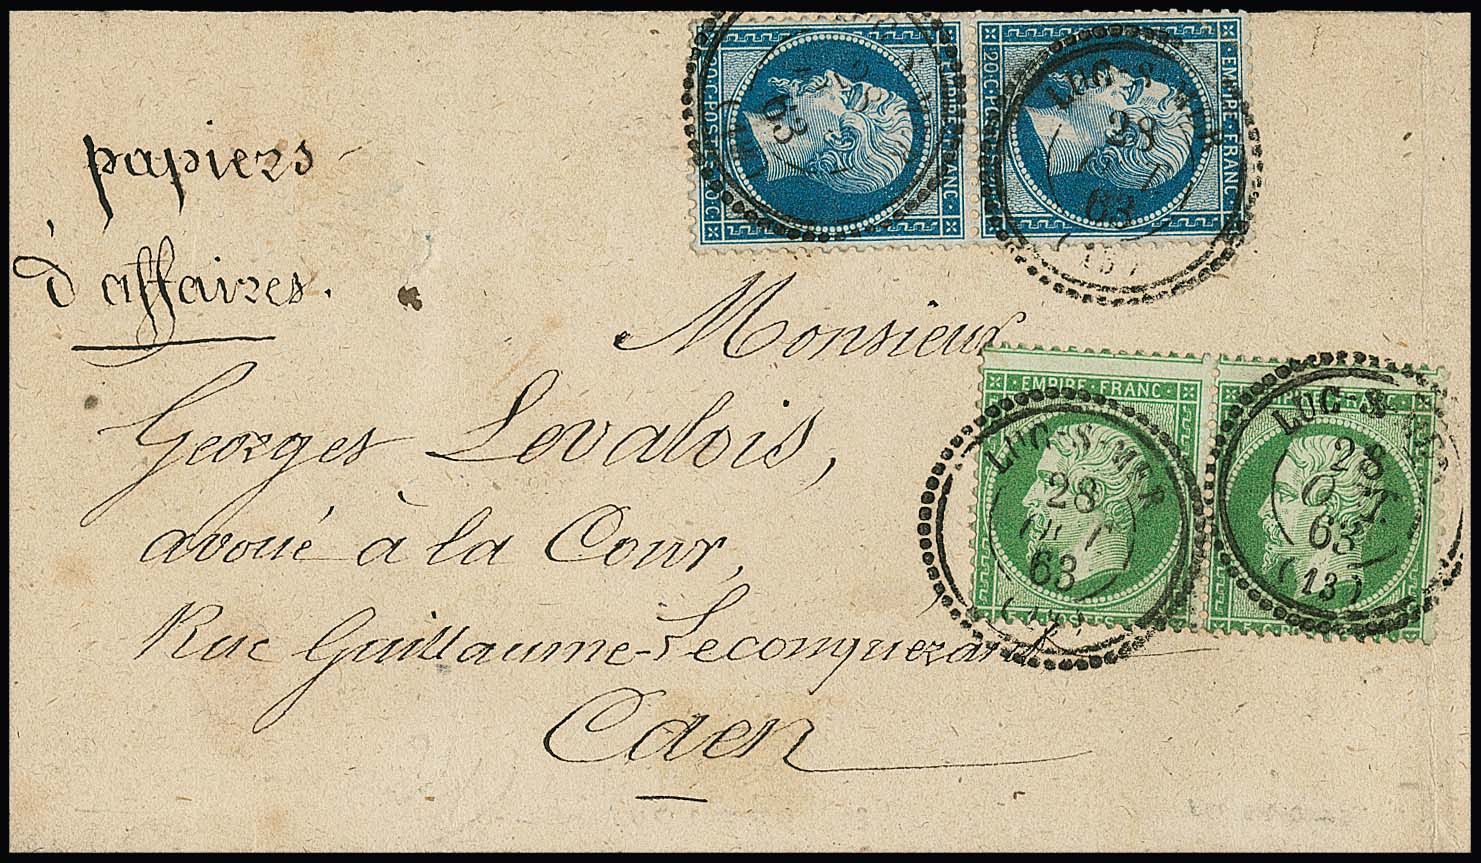 papiers
d'affaires.
Monsieur
Georges Levalois,
avoué à la Cour,
Rue Guillaume-Leconquérant
Caen
EMPIRE FRANC
20·C·POS
EMPIRE FRANC
LUC-S-MER
28
63
(13)
EMPIRE FRANC
LUC-S-MER
28
OCT
63
LUC-S-MER
28
OCT
63
(13)